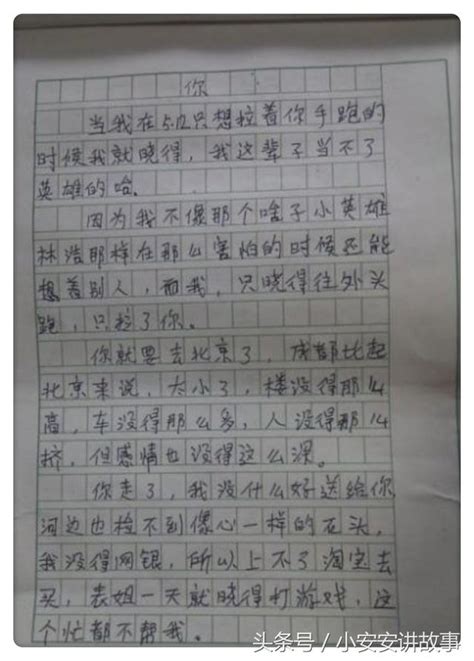 你
当我在5.12只想拉着你手跑的
时候我就晓得，我这辈子当不了
英雄的哈.
因为我不像那个啥子小英雄
林浩那样在那么害怕的时候还能
想着别人，而我，只晓得往外头
跑，只拉了你。
你就要去北京了，成都比起
北京来说，太小了，楼没得那么
高，车没得那么多，人没得那么
挤，但感情也没得这么深。
你走了，我没什么好送给你
河边也捡不到像心一样的石头，
我没得网银，所以上不了淘宝去
买，表姐一天就晓得打游戏，这
个忙都不帮我。
头条号／小安安讲故事